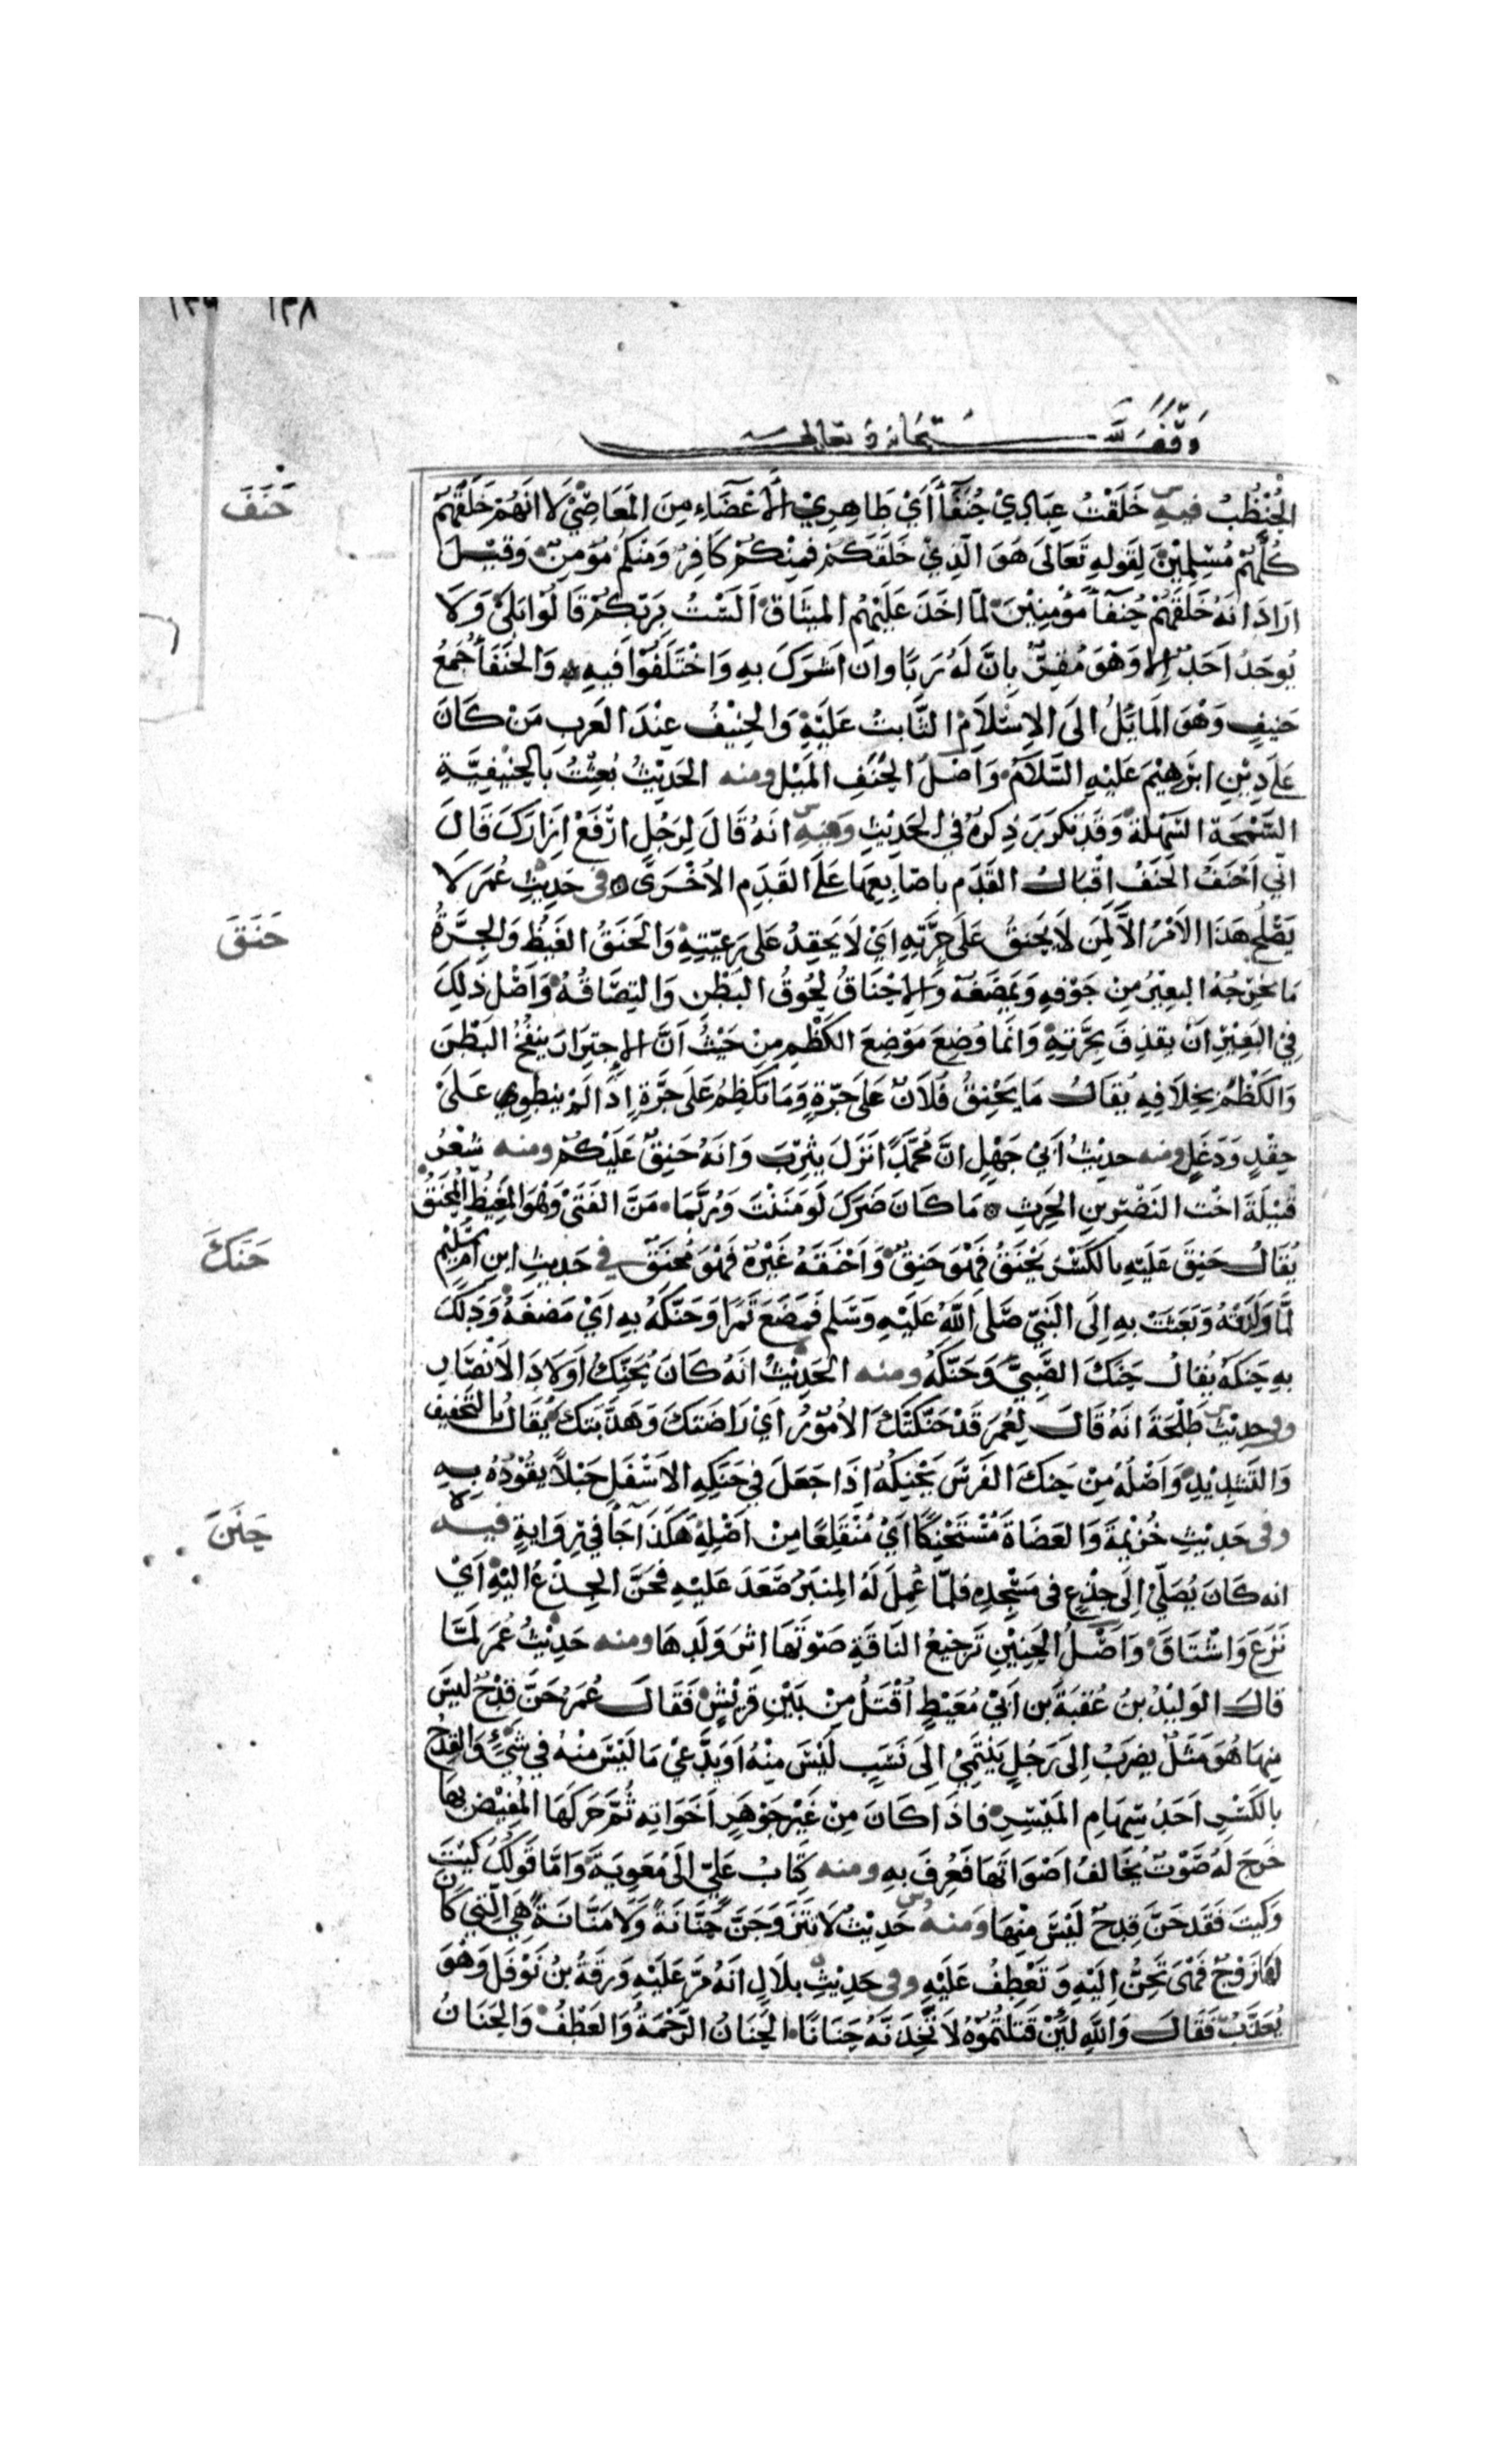 ١٣٨ ١٣٩
وقف لله سبحانه وتعالى
الحُنْظُبُ فيه خَلَقْتُ عِبَادِيْ حُنَفَآءَ أَيْ طَاهِرِيْ الاَعْضَاءِ مِنَ المَعَاصِيْ لَا انَهُمْ خَلَقَهُمْ
حَنَفَ
كُلَّهُمْ مُسْلِمِيْنَ لِقَولِهِ تَعَالَى هَوَ الَّذِيْ خَلَقَكُمْ فَمِنْكُمْ كَافِرٌ وَمنْكُمْ مُؤمِنٌ وَقِيْلَ
ارَادَ انَهُ خَلَقَهُمْ حُنَفآءَ مُؤْمِنِيْنَ لمَّا اخَذَ عَلَيْهِم المِيثَاقَ اَلَسْتُ بِرَبّكُمْ قَالُوْا بَلَىْ وَلَا
يُوجَدُ اَحَدٌ اِلَّا وَهْوَ مُقِرٌّ بِانَّ لَهُ رَبًّا وان اَشرَكَ بِهِ وَاخْتَلَفُوْا فيهِ وَالحُنَفَآءُ جَمعُ
حَنيفٍ وَهْوَ المَايُلُ الىَ الاِسْلاَمِ الثَّابتُ عَلَيْهِ وَالحَنِيْفُ عِنْدَ العَرب مَنْ كَانَ
عَلَى دِيْنِ ابْرهِيْمَ عَلَيْهِ السَّلَامُ وَاصْلُ الحَنَفِ المَيْل ومنه الحَدِيْثُ بُعِثْتُ بالحَنِيْفِيَّةِ
السَّمْحَة السَّهْلَة وَقَد تكرَرَ ذِكرهُ في الحَدِيْثِ وَفيه انَهُ قَالَ لِرَجُلٍ ارْفَعْ اِزَارَكَ قَالَ
اِنّي اَحْنَفُ الحَنَفُ اِقْبَالُ القَدَم باصَابِعِهَا عَلَى القَدَمِ الاُخْرَى في حَدِيْثِ عُمَرَ لَا
حَنَقَ
يَصْلُح هَذَا الاَمْرُ الاَّ لِمَن لَا يَحْنَقُ عَلَى جِرَّتِهِ اَيْ لَا يَحقِدُ عَلى رَعِيّتِهِ وَالحَنَقُ الغَيْظُ وَالجِرَّةُ
مَا يُخْرجُهُ البعِيْرُ مِنْ جَوْفِهِ وَيمضَغُه وَالاِحْنَاقُ لُحُوقُ البَطْنِ وَالتِصَاقُهُ وَاَصْل ذلِكَ
فِيْ البَعِيْرِ اَنْ يَقذِفَ بجِرَّتِهِ وَانّمَا وُضِعَ مَوْضِعَ الكَظْمِ مِنْ حَيْثُ اَنَّ الاِجتِرَارَ ينفُخُ البَطْنَ
وَالكَظْمُ بخِلَافِهِ يُقالُ مَا يَحْنِقُ فُلَانٌ عَلَى جِرّةٍ وَمَا يَكظِمُ عَلَى جِرَّةٍ اِذَا لَمْ يَنطوِي عَلَىْ
حِقْدٍ وَدَغَلٍ ومنه حدِيْثُ اَبىْ جَهْلٍ انَّ مُحَمَّدًا نَزَلَ يَثرِبَ وَانَهُ حَنِقٌ عَلَيْكُمْ ومنه شعْرُ
قُتَيْلَةَ اخْت النَضْر بنِ الحَرِثِ مَا كَانَ ضَرَّكَ لَو مَنَنْتَ وَرُبَّمَا مَنَّ الفَتَىْ وَهْوَ المَغِيْظُ المُحْنَقُ
يُقَالُ حَنِقَ عَلَيهِ بالكَسْر يَحْنَقُ فَهْوَ حَنِقٌ وَاَحْنَقَهُ غَيْرُهُ فَهْوَ مُحْنَقٌ في حَدِيثِ ابنِ اُمّ سُلَيْم
حَنَكَ
لَمَّا وَلَدَتْهُ وَبَعَثَتْ بِهِ اِلَى النَبيّ صَلى اللهُ عَلَيْهِ وَسَلم فَمَضَغَ تَمْرًا وَحَنَّكَهُ بِهِ اَيْ مَضغَهُ وَدَلَكَ
بِهِ حَنَكَهُ يُقالُ حَنَكَ الصَّبِيَّ وَحَنَّكَهُ ومنه الحَدِيْثُ انَهُ كَانَ يُحَنِّكُ اَوْلَادَ الاَنْصَار
وفي حديْث طَلْحَةَ انَهُ قَالَ لِعُمَرَ قَدْ حَنَّكَتْكَ الاُمُوْرُ اَيْ رَاضَتكَ وَهَذَّبَتكَ يُقَالُ بالتَخْفِيف
وَالتَشدِيْدِ وَاَصْلُهُ مِنْ حَنكَ الفَرَسَ يَحْنِكُهُ اِذَا جَعَلَ في حَنَكِهِ الاَسْفَلِ حَبْلاً يَقُوْدُهُ بِهِ
وفي حَدِيْثِ خُزَيْمَةَ وَالعَضَاهَ مُسْتَحْنِكًا اَيْ مُنْقَلِعًا مِنْ اَصْلِهِ هَكَذَا جَآءَ فِيْ رِوَايَةٍ فيه
حَنَنَ
انه كَانَ يُصَلّيْ اِلَى جِذْعٍ في مَسْجِدِهِ فلمَّا عُمِلَ لَهُ المِنبَرُ صَعَدَ عَليْهِ فَحَنَّ الجِذْعُ الَيْهِ اَيْ
نَزَعَ وَاشْتَاقَ وَاَصْلُ الحَنِيْنِ تَرجِيعُ النَاقَةِ صَوْتَهَا اثْرَ وَلَدِهَا ومنه حَدِيْثُ عُمَرَ لَمَّا
قالَ الوَلِيْدُ بنُ عُقبَةَ بن اَبيْ مُعَيْطٍ اُقْتَلُ مِنْ بَيْنِ قُرَيْشٍ فَقَالَ عُمَرُ حَنَّ قِدْحٌ لَيْسَ
مِنهَا هُوَ مَثَلٌ يضرَبُ اِلىَ رَجُلٍ يَنْتَمِيْ اِلَى نَسَبٍ لَيْسَ مِنْهُ اَوْ يَدَّعيْ مَا لَيْسَ مِنْهُ في شَيْءٍ وَالقِدْحُ
بالكَسْرِ اَحَدُ سِهَامِ المَيْسِرِ فاذَا كَانَ مِنْ غَيْرِ جَوْهَرِ اَخَوَاتِهِ ثُمَّ حَركَهَا المُفِيْضُ بهَا
خرَجَ لَهُ صَوْتٌ يُخَالفُ اَصْوَاتَهَا فَعُرِفَ بِهِ ومنه كِتَابُ عَليّ الىَ مُعَوِيَةَ وَامَّا قَولُكَ كَيْتَ
وَكَيتَ فَقَد حَنَّ قِدحٌ لَيْسَ مِنْهَا وَمنه حَدِيْثُ لَا تَتَزَوَّجَنَّ حَنَّانَةً وَلَا مَنَّانَةً هِيَ الَّتِيْ كَانَ
لَهَا زَوْجٌ فَهْىَ تَحِنُّ الِيْهِ وَتَعْطِفُ عَلَيْهِ وفي حَدِيْثِ بلَالٍ انَهُ مَرَّ عَلَيْهِ وَرَقةُ بنُ نَوْفَلٍ وَهْوَ
يُعَذَّبُ فَقَالَ وَاللهِ لَئِنْ قَتَلْتُمُوْهُ لَاَتَّخِذَنَّهُ حَنَانًا الحَنَانُ الرَّحْمَةُ وَالعَطْفُ وَالحَنَانُ